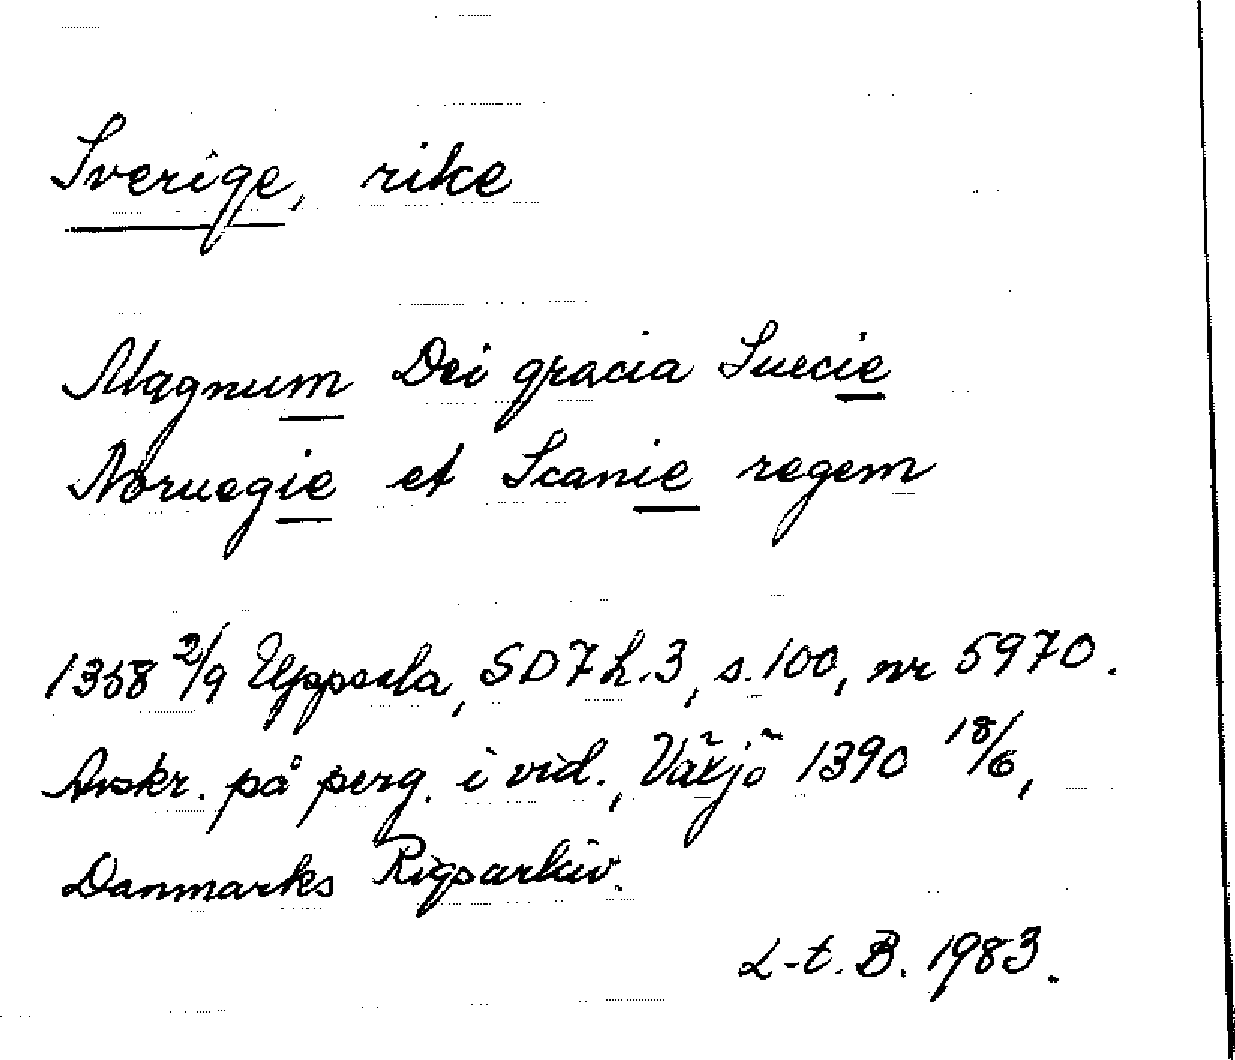 Sverige, rike
Magnum Dei gracia Suecie
Noruegie et Scanie regem
1358 2/9 Uppsala, SD 7 h. 3, s. 100, nr 5970.
Avskr. på perg. i vid., Växjö 1390 18/6,
Danmarks Rigsarkiv.
L-t. B. 1983.